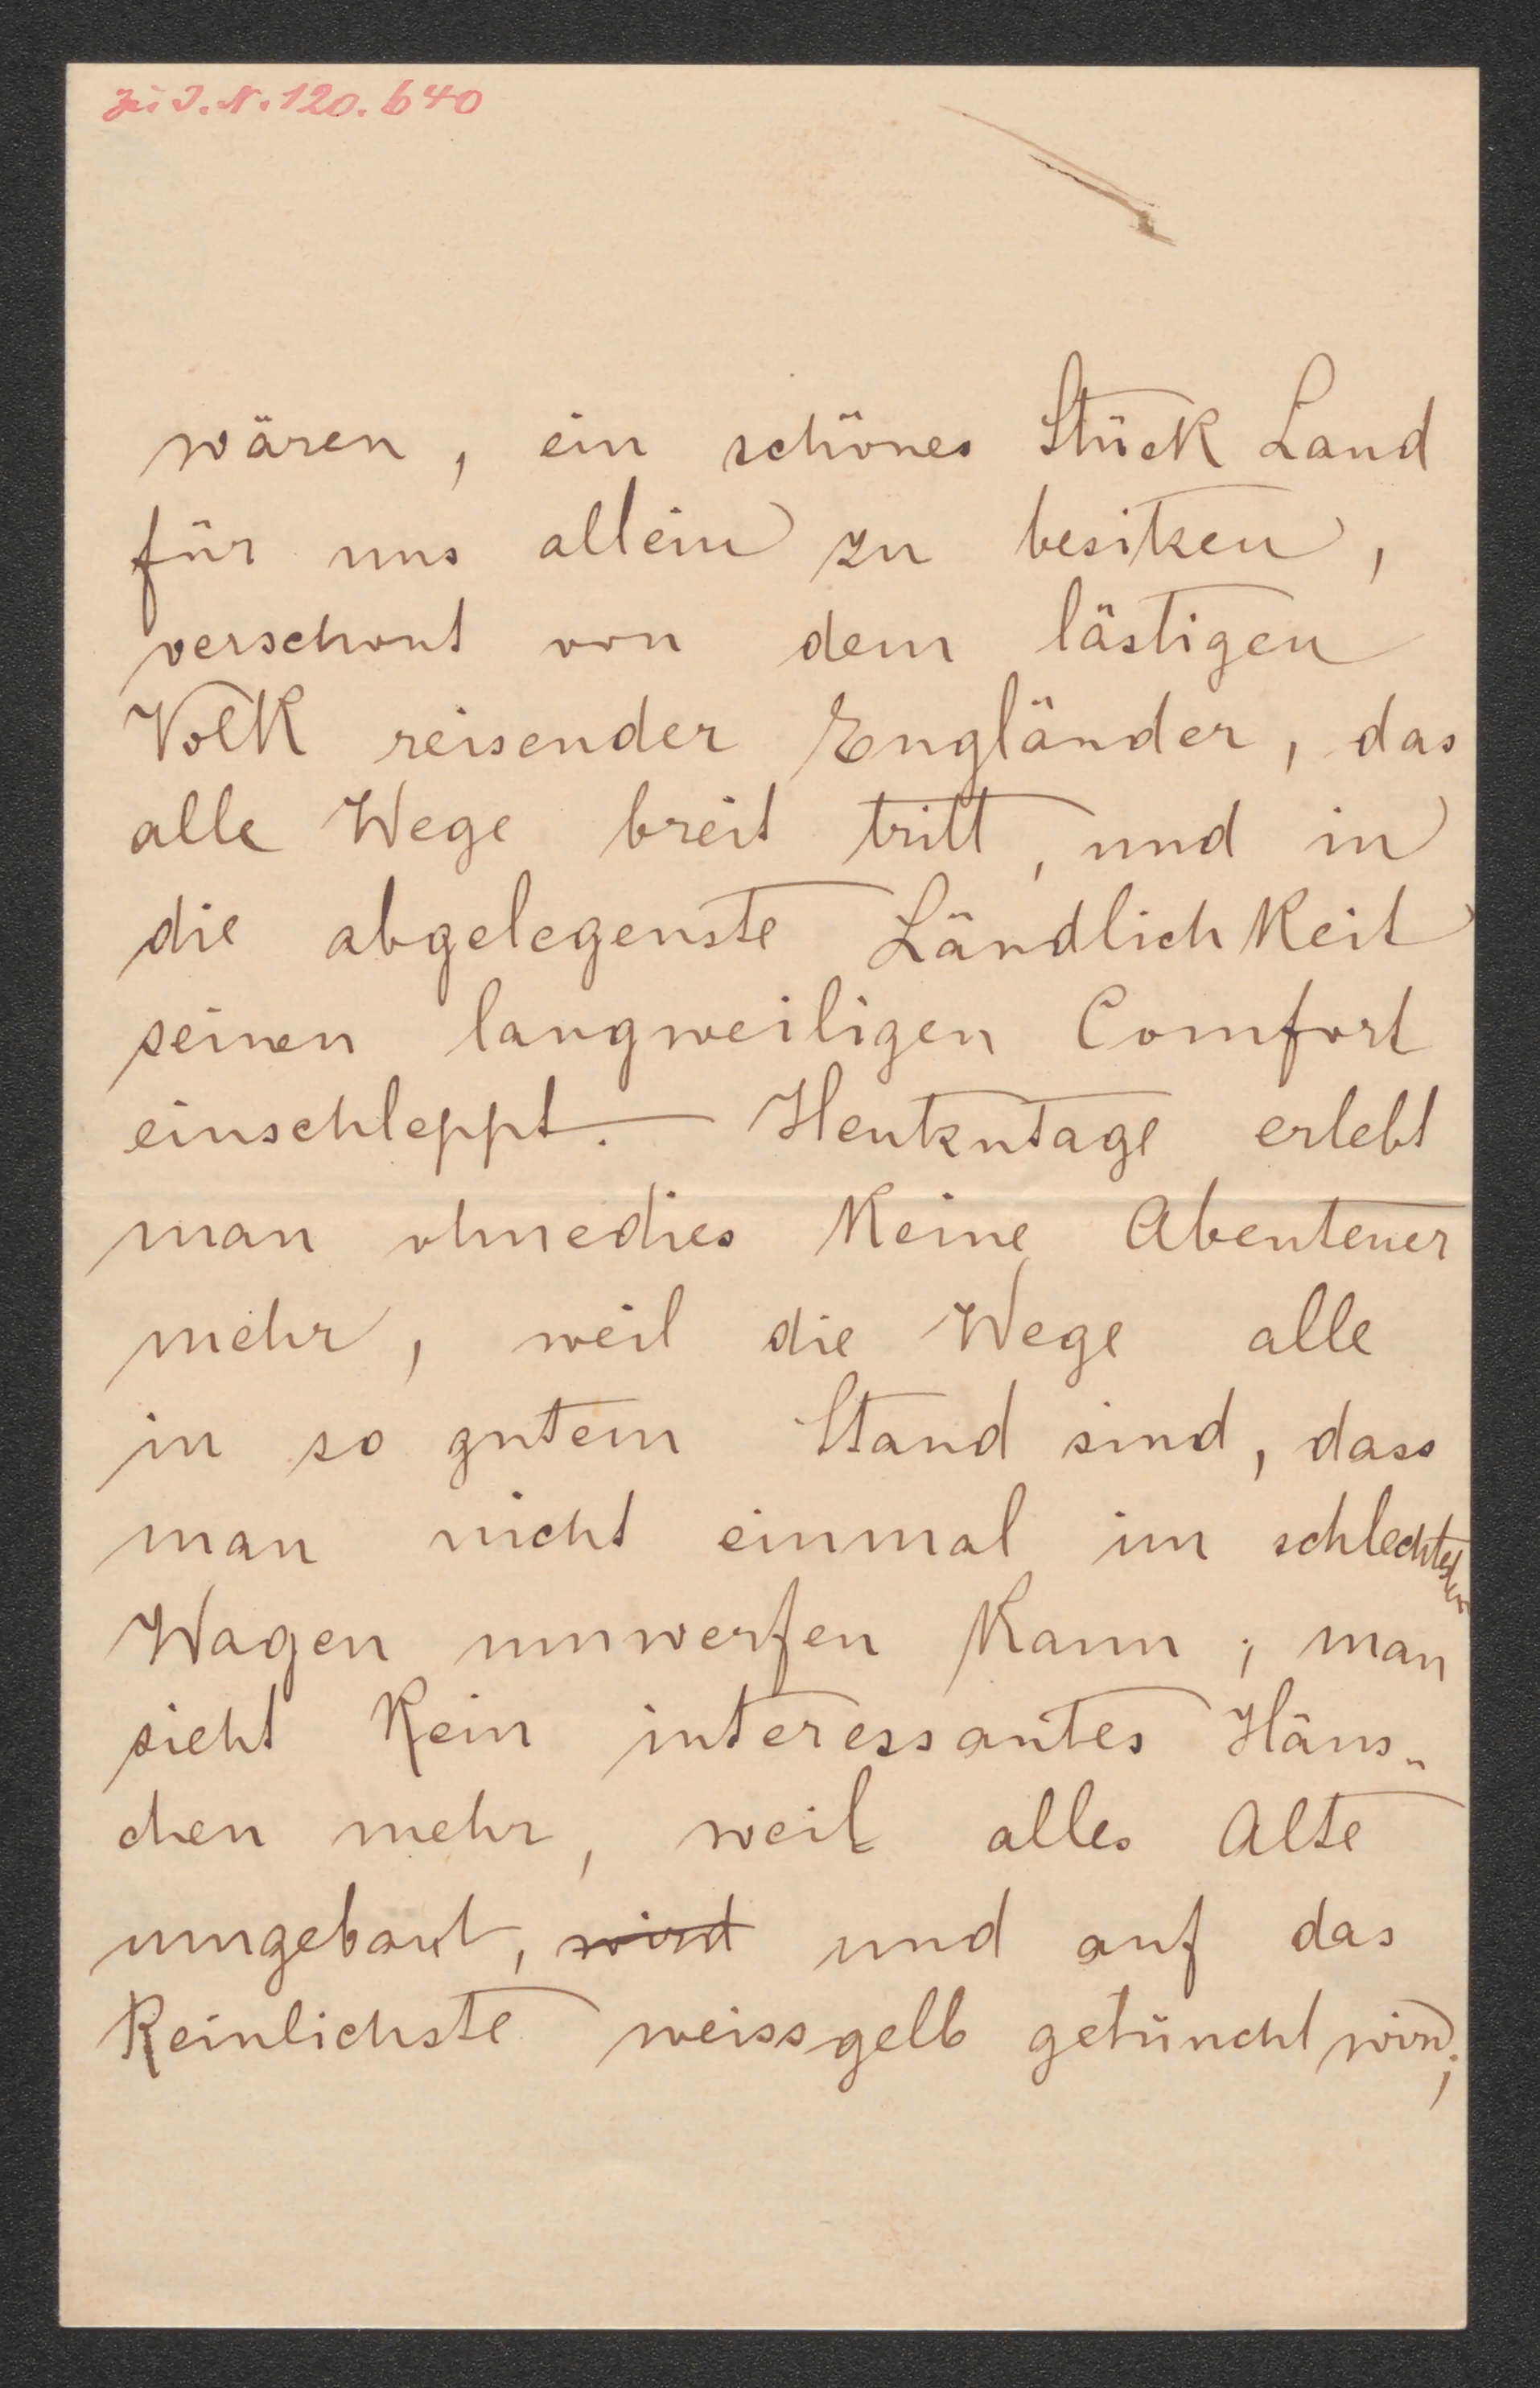 zu I.N. 120.640
wären, ein schönes Stück Land
für uns allein zu besitzen,
verschont von dem lästigen
Volk reisender Engländer, das
alle Wege breit tritt, und in
die abgelegenste Ländlichkeit
seinen langweiligen Comfort
einschleppt. — Heutzutage erlebt
man ohnedies keine Abenteuer
mehr, weil die Wege alle
in so gutem Stand sind, dass
man nicht einmal im schlechtesten
Wagen umwerfen kann; man
sieht kein interessantes Häus-
chen mehr, weil alles Alte
umgebaut, wird und auf das
Reinlichste weissgelb getüncht wird;